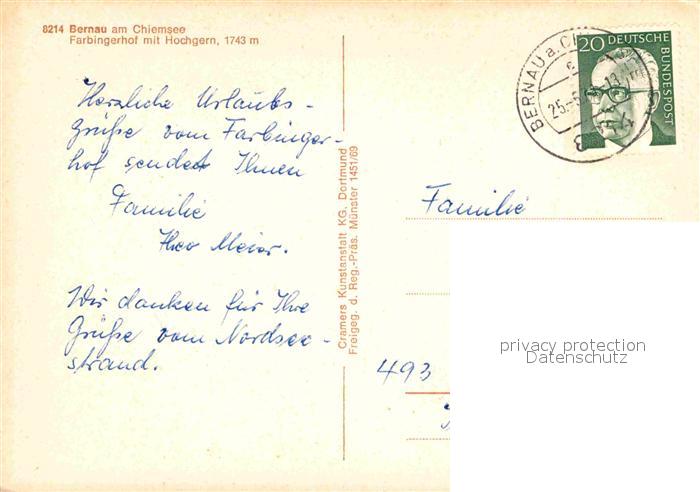 8214 Bernau am Chiemsee
Farbingerhof mit Hochgern, 1743 m
Herzliche Urlaubs-
grüße vom Farbinger-
hof sendet Ihnen
Familie
Theo Meier.
Wir danken für Ihre
Grüße vom Nordsee-
strand.
Cramers Kunstanstalt KG. Dortmund
Freigeg. d. Reg.-Präs. Münster 1451/69
BERNAU a.
25.-5.
20 DEUTSCHE
BUNDESPOST
Familie
493
privacy protection
Datenschutz